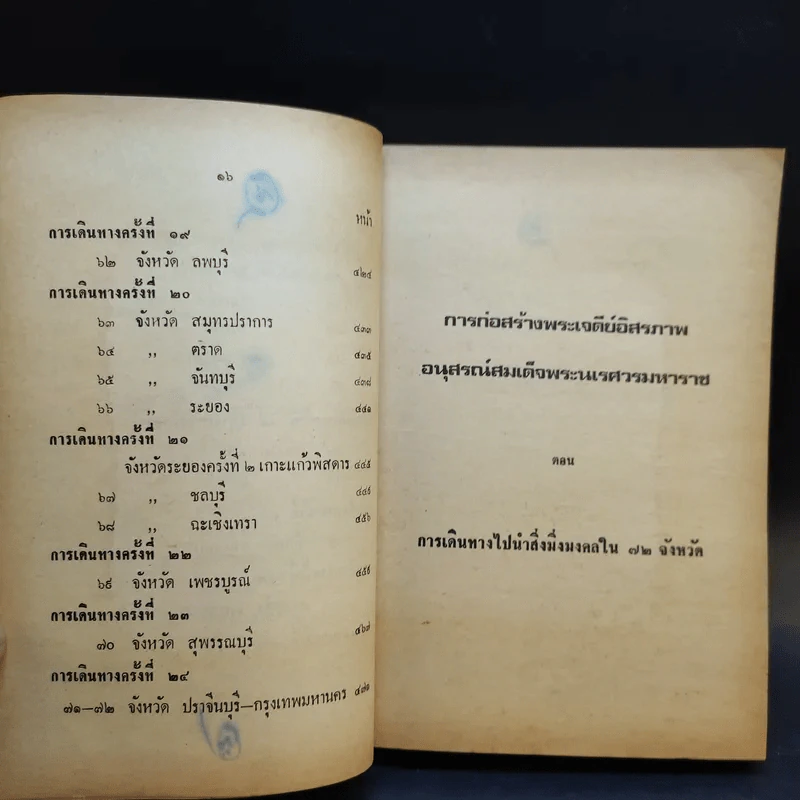 ๑๖
หน้า
การเดินทางครั้งที่ ๑๙
๖๒ จังหวัด ลพบุรี ๔๒๔
การเดินทางครั้งที่ ๒๐
๖๓ จังหวัด สมุทรปราการ ๔๓๓
๖๔ ,, ตราด ๔๓๕
๖๕ ,, จันทบุรี ๔๓๘
๖๖ ,, ระยอง ๔๔๑
การเดินทางครั้งที่ ๒๑
จังหวัดระยองครั้งที่ ๒ เกาะแก้วพิสดาร ๔๔๕
๖๗ ,, ชลบุรี
๖๘ ,, ฉะเชิงเทรา ๔๕๖
การเดินทางครั้งที่ ๒๒
๖๙ จังหวัด เพชรบูรณ์
การเดินทางครั้งที่ ๒๓
๗๐ จังหวัด สุพรรณบุรี ๔๖๗
การเดินทางครั้งที่ ๒๔
๗๑—๗๒ จังหวัด ปราจีนบุรี—กรุงเทพมหานคร
การก่อสร้างพระเจดีย์อิสรภาพ
อนุสรณ์สมเด็จพระนเรศวรมหาราช
ตอน
การเดินทางไปนำสิ่งมิ่งมงคลใน ๗๒ จังหวัด